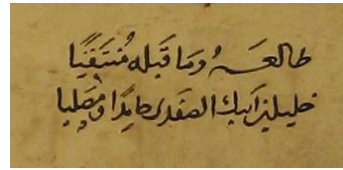 طالعه وما قبله منتقيًا
خليل بن ايبك الصفدى حامدًا ومصليا